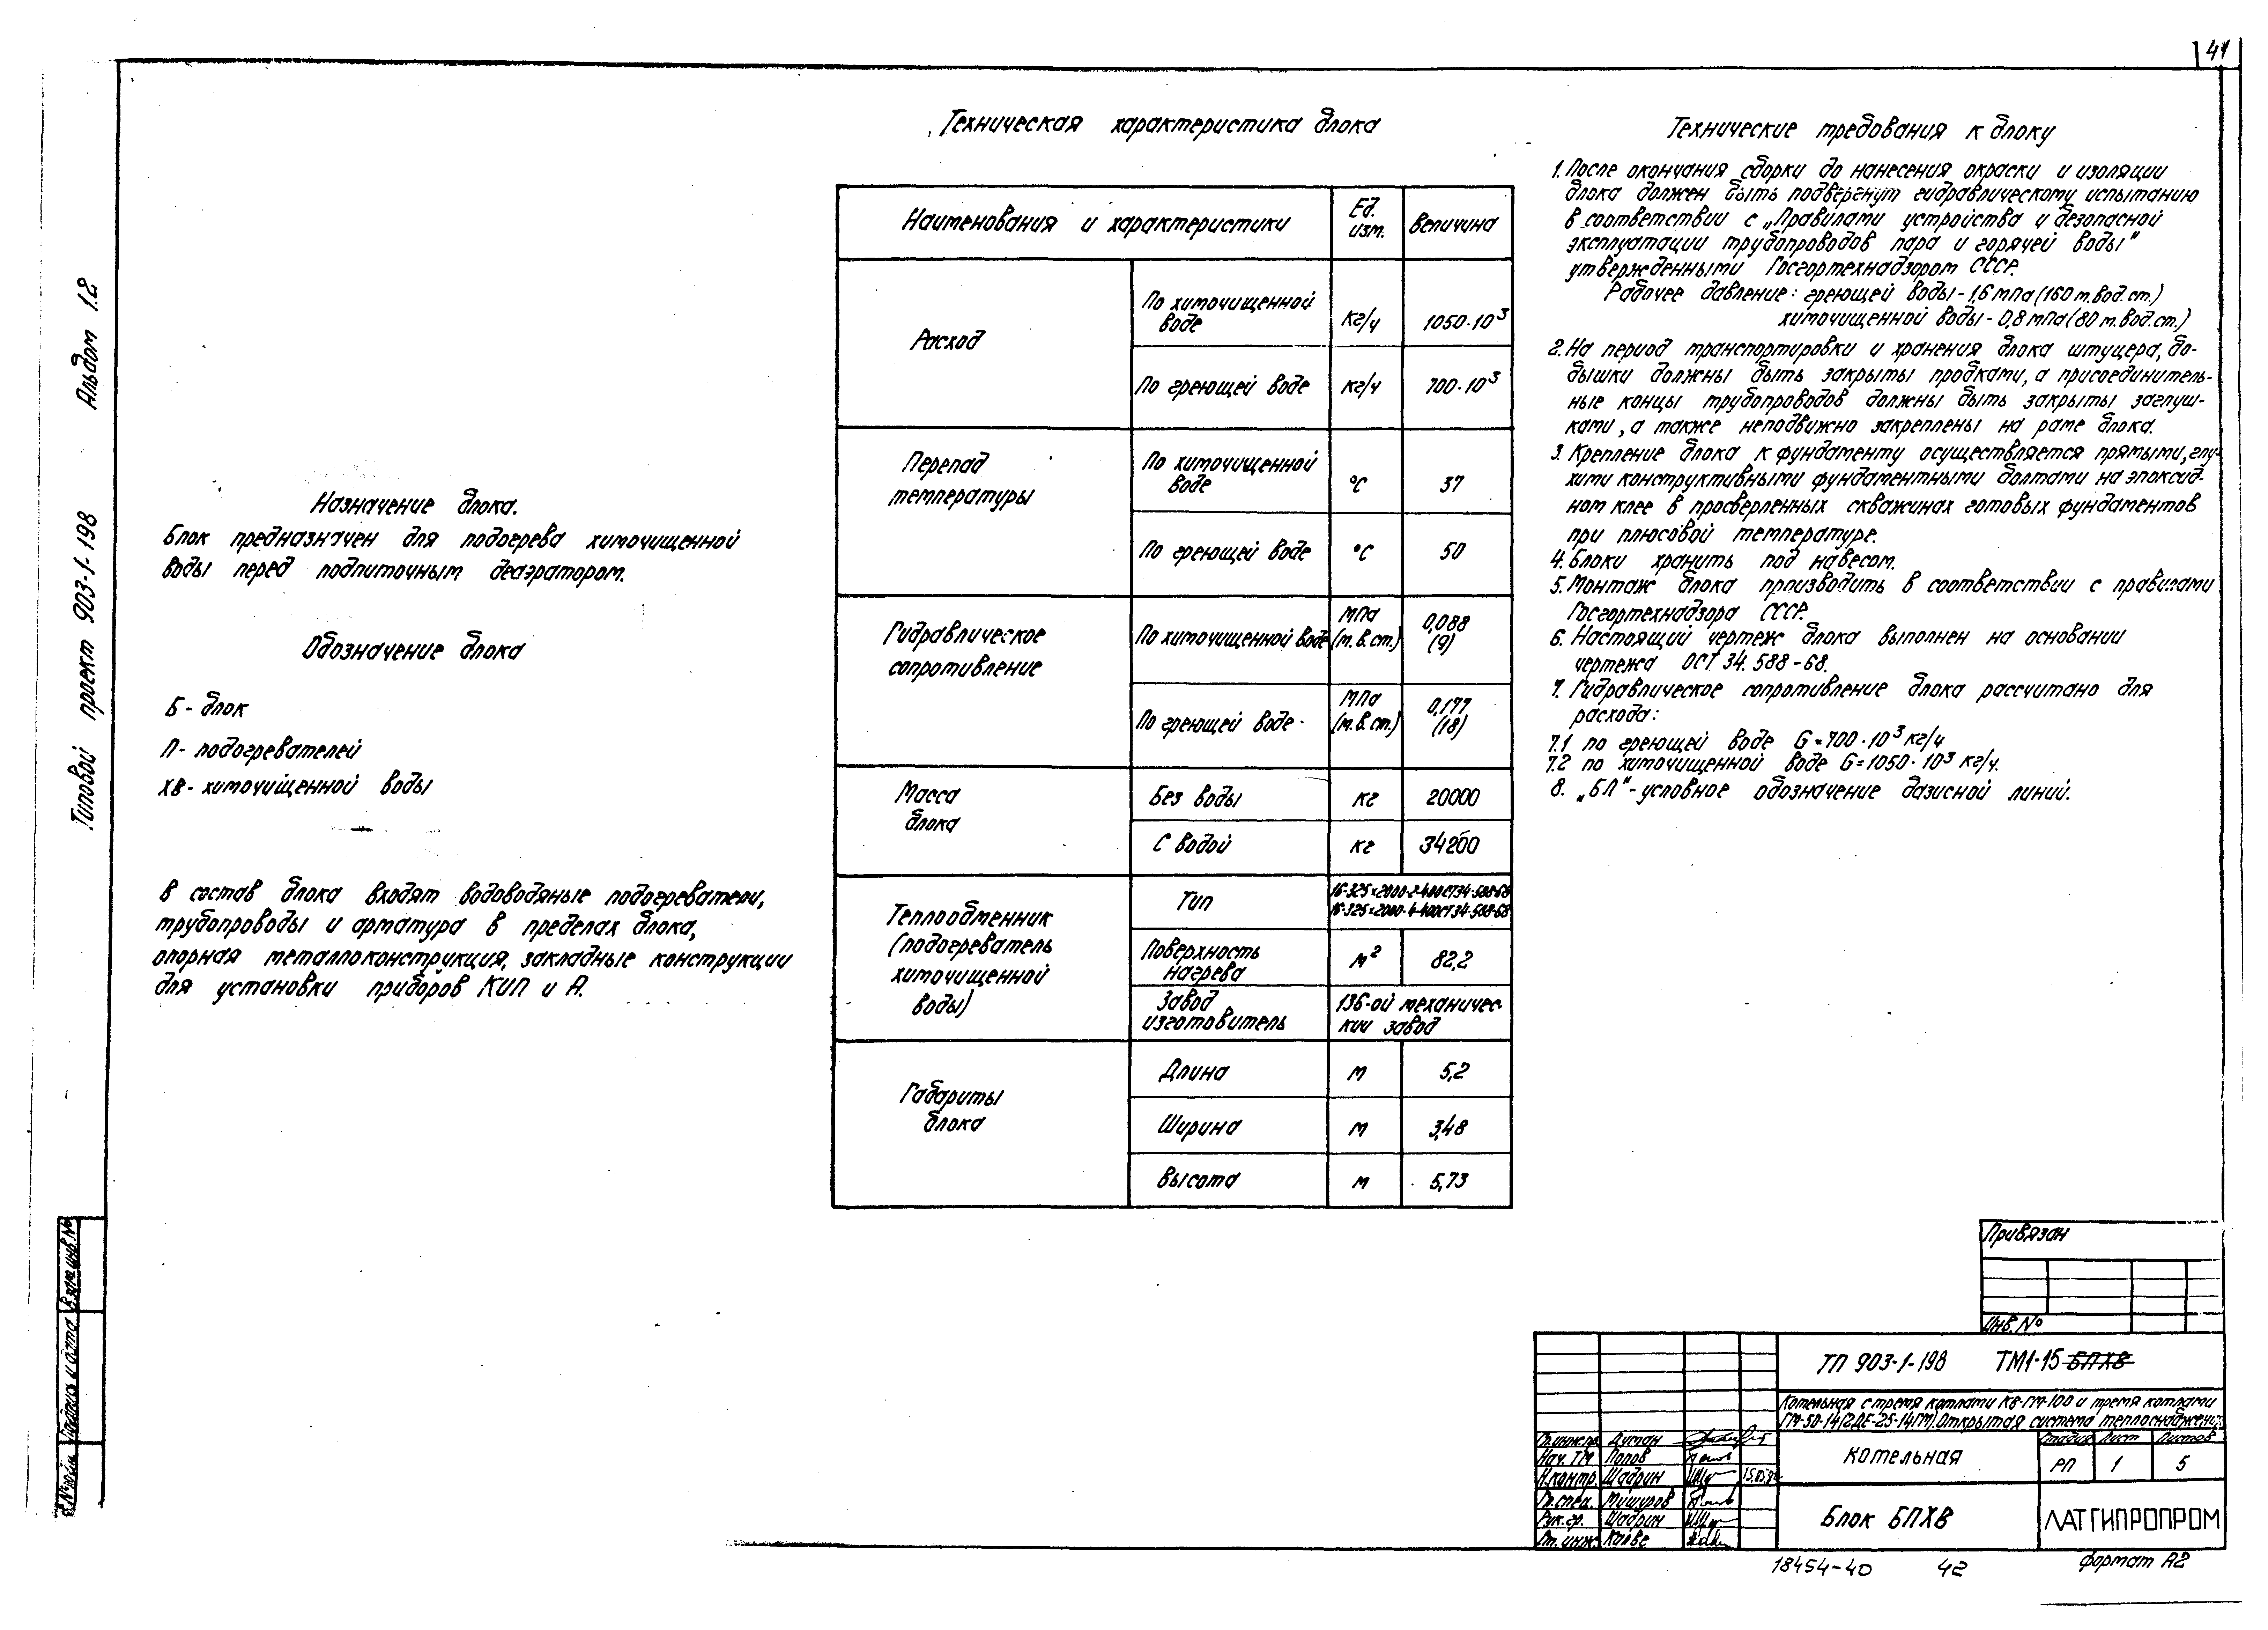 41
Типовой проект 903-1-198 Альбом 1.2
Назначение блока.
Блок предназначен для подогрева химочищенной
воды перед подпиточным деаэратором.
Обозначение блока
Б - блок
П - подогревателей
ХВ - химочищенной воды
В состав блока входят водоводяные подогреватели,
трубопроводы и арматура в пределах блока,
опорная металлоконструкция, закладные конструкции
для установки приборов КИП и А.
Техническая характеристика блока
Наименования и характеристики Ед. изм. Величина
Расход
По химочищенной воде кг/ч 1050·10³
По греющей воде кг/ч 700·10³
Перепад температуры
По химочищенной воде °С 37
По греющей воде °С 50
Гидравлическое сопротивление
По химочищенной воде МПа (м.в.ст.) 0,088 (9)
По греющей воде МПа (м.в.ст.) 0,177 (18)
Масса блока
Без воды кг 20000
С водой кг 34200
Теплообменник (подогреватель химочищенной воды)
Тип 16-325×2000-2-40ОСТ34-588-68
16-325×2000-4-40ОСТ34-588-68
Поверхность нагрева м² 82,2
Завод изготовитель 136-ой механичес-
кий завод
Габариты блока
Длина м 5,2
Ширина м 3,48
Высота м 5,73
Технические требования к блоку
1. После окончания сборки до нанесения окраски и изоляции
блока должен быть подвергнут гидравлическому испытанию
в соответствии с „Правилами устройства и безопасной
эксплуатации трубопроводов пара и горячей воды"
утвержденными Госгортехнадзором СССР.
Рабочее давление: греющей воды - 1,6 мПа (160 м.вод.ст.)
химочищенной воды - 0,8 мПа (80 м.вод.ст.)
2. На период транспортировки и хранения блока штуцера, бо-
бышки должны быть закрыты пробками, а присоединитель-
ные концы трубопроводов должны быть закрыты заглуш-
ками, а также неподвижно закреплены на раме блока.
3. Крепление блока к фундаменту осуществляется прямыми, глу-
хими конструктивными фундаментными болтами на эпоксид-
ном клее в просверленных скважинах готовых фундаментов
при плюсовой температуре.
4. Блоки хранить под навесом.
5. Монтаж блока производить в соответствии с правилами
Госгортехнадзора СССР.
6. Настоящий чертеж блока выполнен на основании
чертежа ОСТ 34. 588-68.
7. Гидравлическое сопротивление блока рассчитано для
расхода:
7.1 по греющей воде G=700·10³ кг/ч
7.2 по химочищенной воде G=1050·10³ кг/ч.
8. „БЛ"- условное обозначение базисной линий.
Привязан
Инв. №
ТП 903-1-198 ТМ1-15 БПХВ
Котельная с тремя котлами КВ-ГМ-100 и тремя котлами
ГМ-50-14 (2ДЕ-25-14ГМ). Открытая система теплоснабжения
Котельная
Стадия Лист Листов
РП 1 5
Блок БПХВ
ЛАТГИПРОПРОМ
Гл.инж.пр. Думан
Нач. ТМ Попов
Н.контр. Шадрин
Гл.спец. Мишуров
Рук.гр. Шадрин
Ст. инж.
Взам инв №
Подпись и дата
18454-40 42
Формат А2